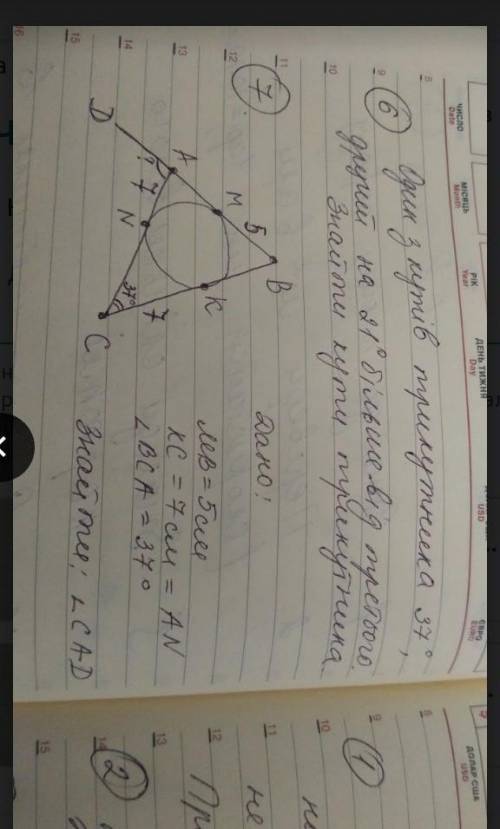 ЧИСЛО
Date
МІСЯЦЬ
Month
РІК
Year
ДЕНЬ ТИЖНЯ
Day
USD
ЄВРО
EURO
8
6 Один з кутів трикутника 37°,
9
другий на 21° більше від третього.
Знайти кути трикутника.
10
11
7
Дано:
12
МВ = 5см
13
КС = 7см = AN
∠BCA = 37°
14
Знайти: ∠CAD
15
16
B
5
M
K
A
D
?
7
N
37°
7
C
ДОЛАР США
USD
8
9
1
10
11
не
12
При
13
14
2
15